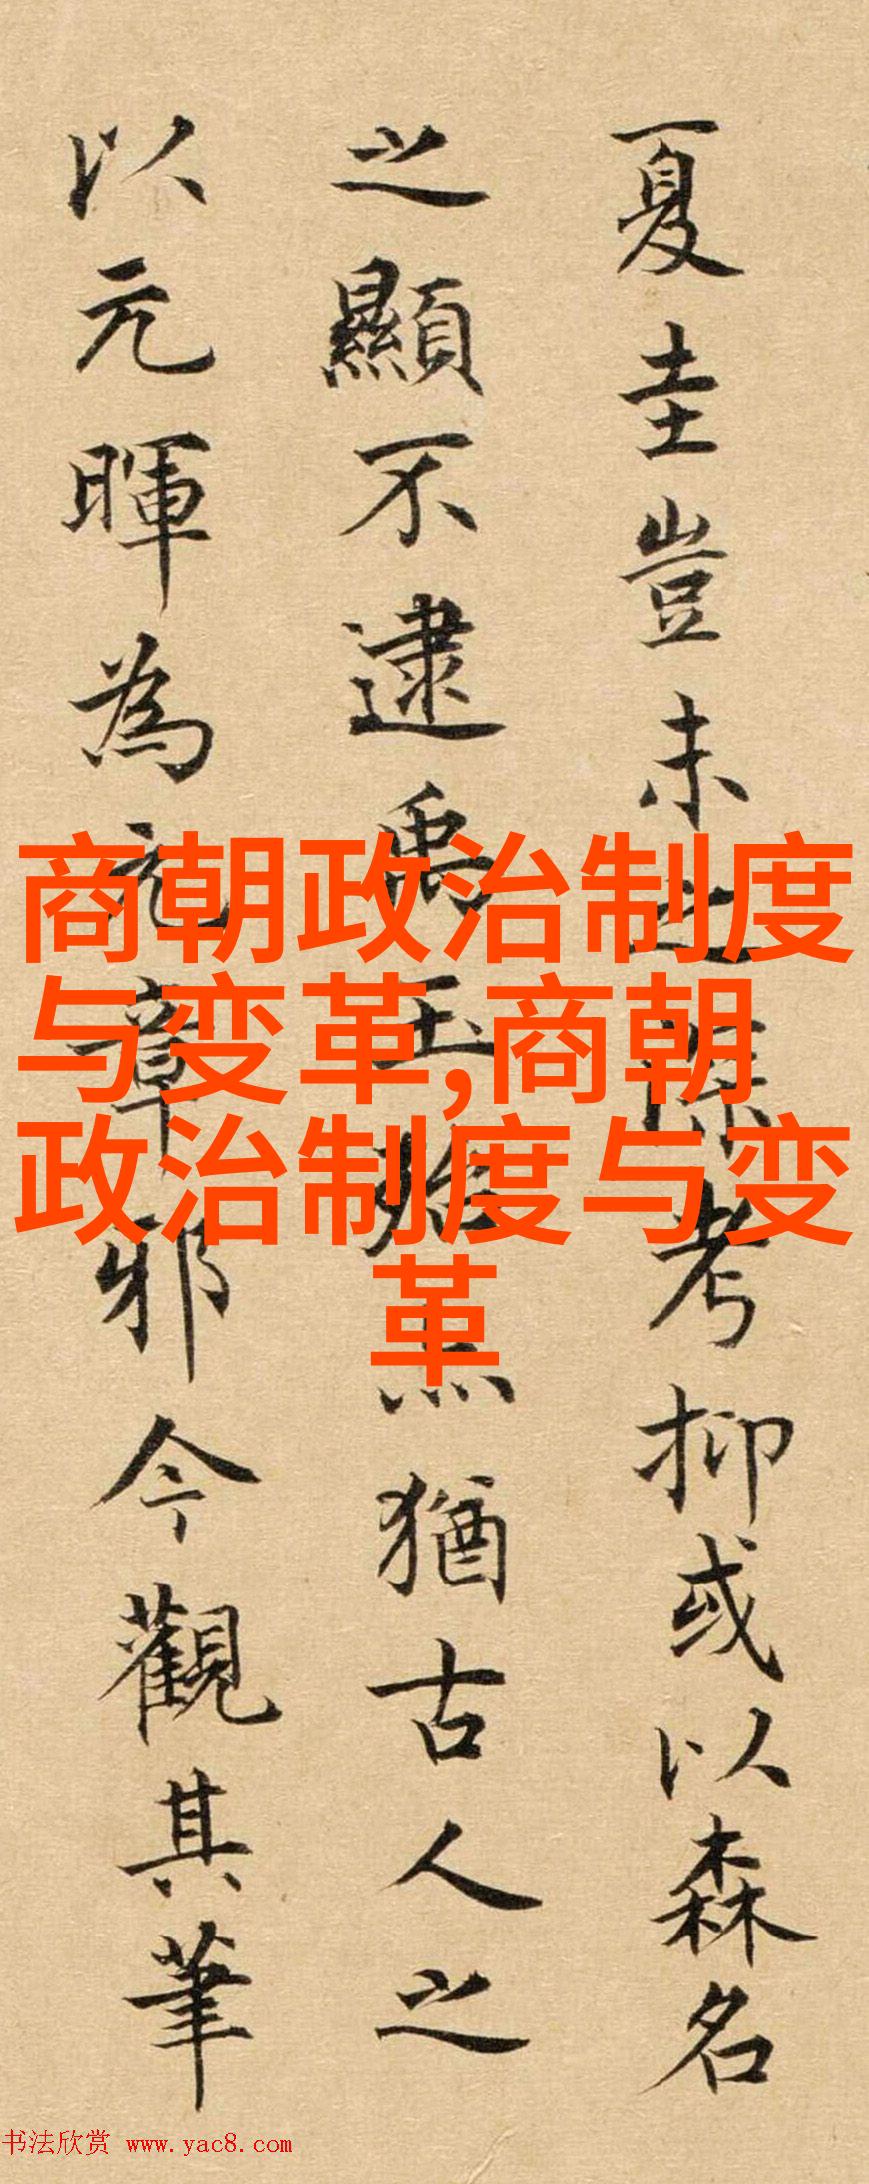 夏圭豈未之深考抑或以森名
之顯不逮禹玉殆亦猶古人之
以元暉為元章邪今觀其筆
商朝政治制度
与变革,商朝
政治制度与变
革
书法欣赏 www.yac8.com